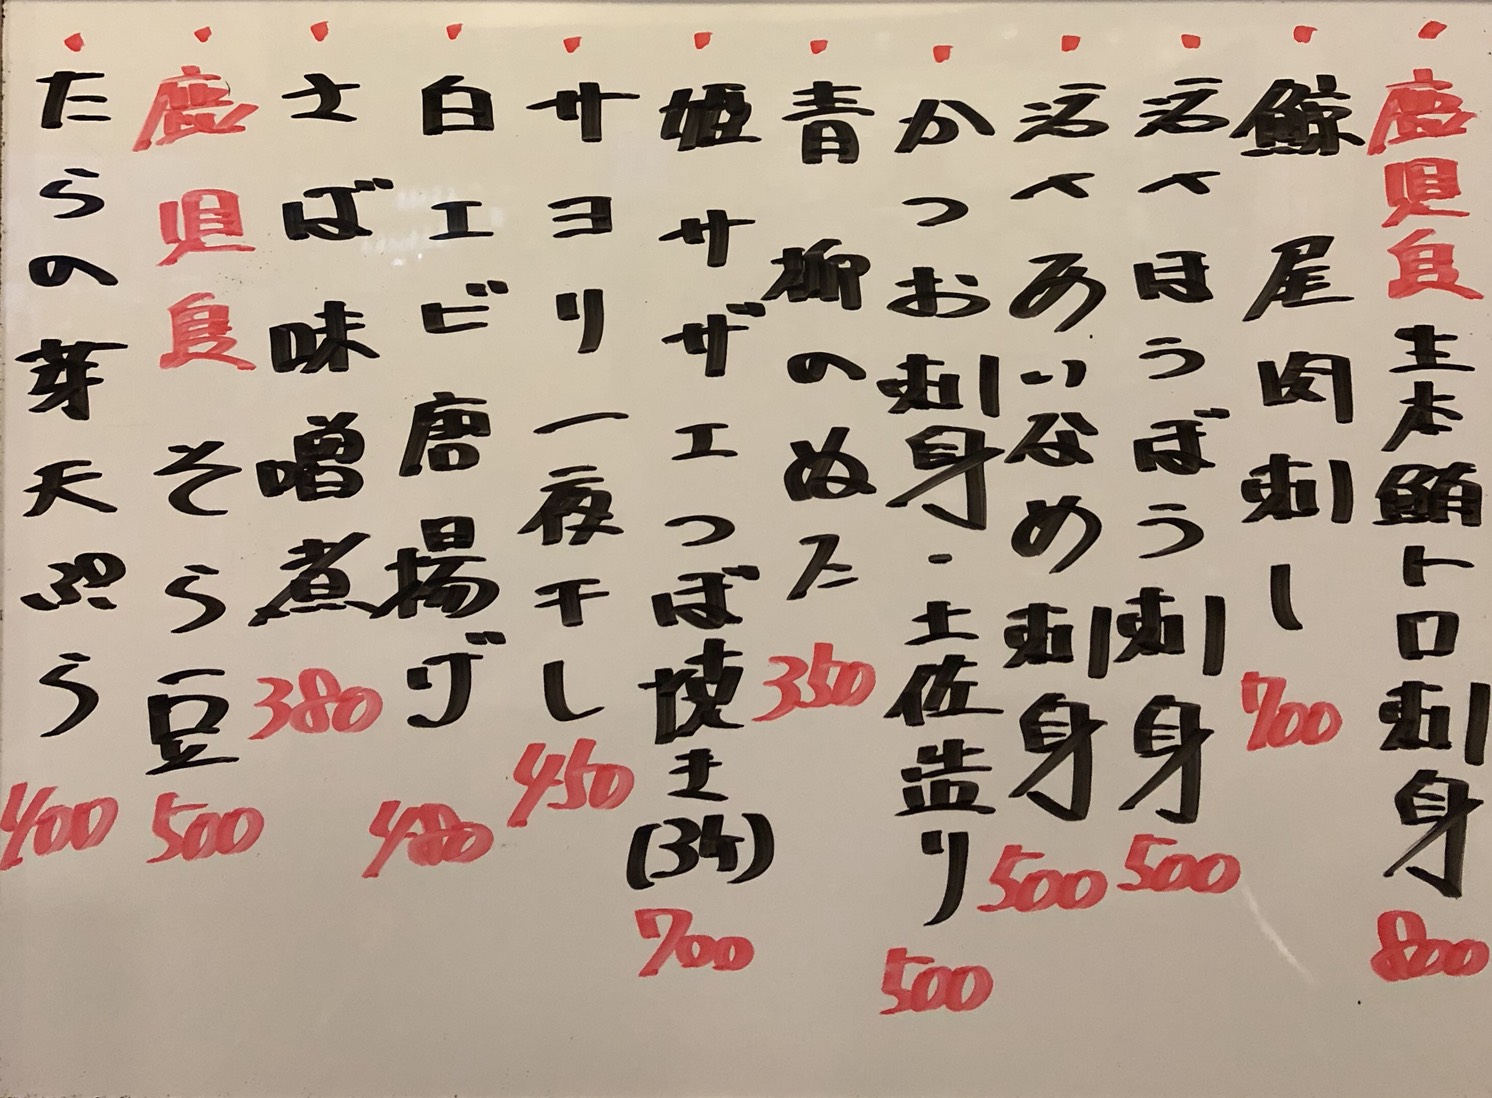 鹿児島生本鮪トロ刺身 800
鯨尾肉刺し 700
活〆ほうぼう刺身 500
活〆あいなめ刺身 500
かつお刺身・土佐造り 500
青柳のぬた 350
姫サザエつぼ焼き(3ヶ) 700
サヨリ一夜干し 450
白エビ唐揚げ 480
さば味噌煮 380
鹿児島そら豆 500
たらの芽天ぷら 400